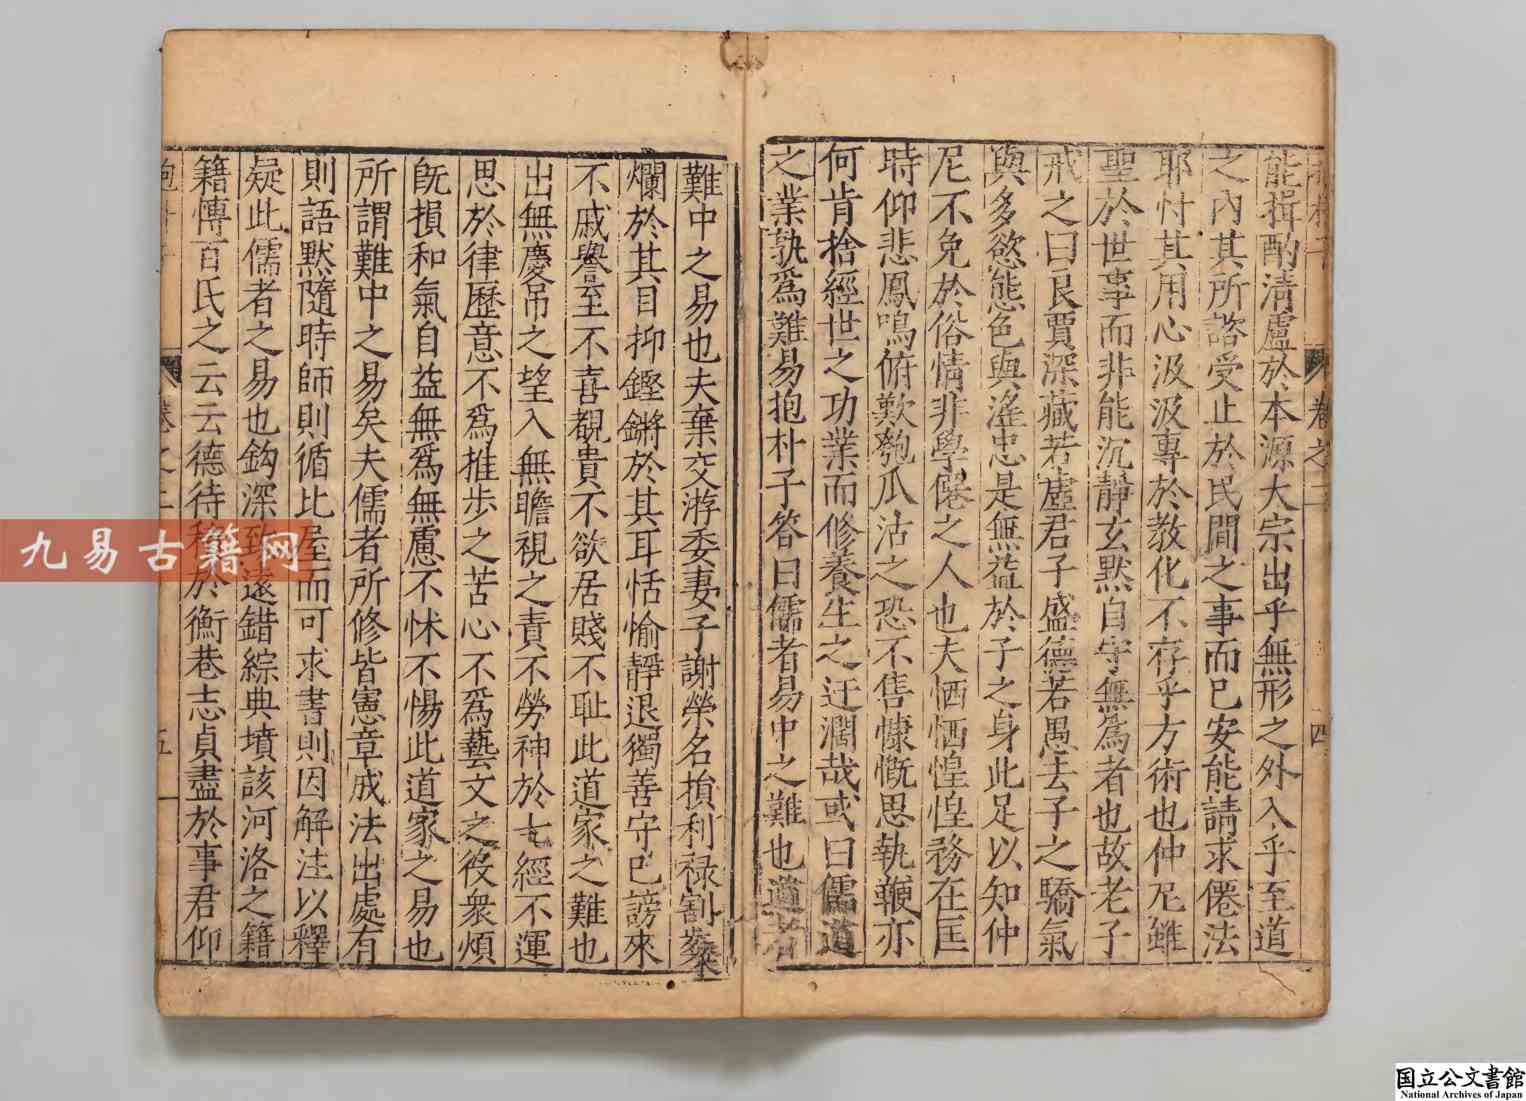 能挹酌清虛於本源大宗出乎無形之外入乎至道
之內其所諮受止於民間之事而已安能請求僊法
耶忖其用心汲汲專於教化不存乎方術也仲尼雖
聖於世事而非能沉靜玄默自守無為者也故老子
戒之曰良賈深藏若虛君子盛德若愚去子之驕氣
與多慾態色與滛志是無益於子之身此足以知仲
尼不免於俗情非學僊之人也夫恓恓惶惶務在匡
時仰悲鳳鳴俯歎匏瓜沽之恐不售慷慨思執鞭亦
何肯捨經世之功業而修養生之迂濶哉或曰儒道
之業孰為難易抱朴子答曰儒者易中之難也道者
難中之易也夫棄交游委妻子謝榮名損利祿割粲
爛於其目抑鏗鏘於其耳恬愉靜退獨善守己謗來
不戚譽至不喜覩貴不欲居賤不耻此道家之難也
出無慶吊之望入無瞻視之責不勞神於七經不運
思於律歷意不為推步之苦心不為藝文之役衆煩
旣損和氣自益無為無慮不怵不惕此道家之易也
所謂難中之易矣夫儒者所修皆憲章成法出處有
則語默隨時師則循比屋而可求書則因解注以釋
疑此儒者之易也鈎深致遠錯綜典墳該河洛之籍
籍博百氏之云云德待積於衡巷志貞盡於事君仰
卷之二
四
卷之二
五
九易古籍网
国立公文書館
National Archives of Japan